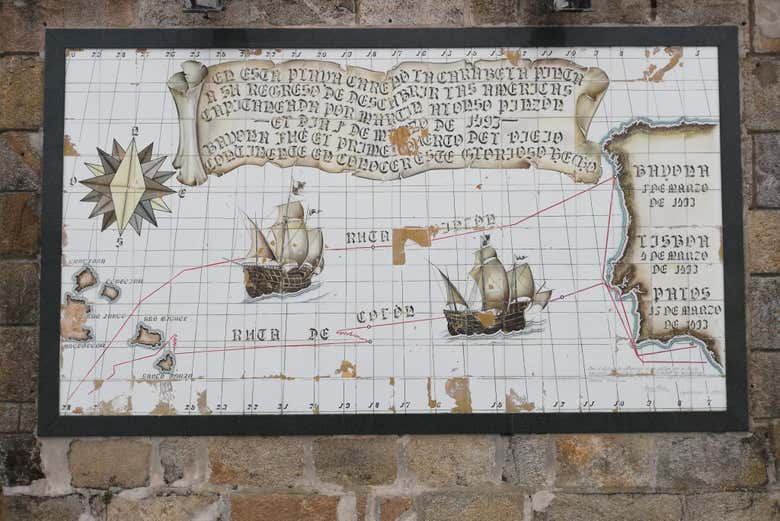 EN ESTA PLAYA CARENO LA CARABELA PINTA
A SU REGRESO DE DESCUBRIR LAS AMERICAS
CAPITANEADA POR MARTIN ALONSO PINZON
— EL DIA 1 DE MARZO DE 1493 —
BAYONA FUE EL PRIMER PUERTO DEL VIEJO
CONTINENTE EN CONOCER ESTE GLORIOSO HECHO
BAYONA
1 DE MARZO
DE 1493
RUTA PINZON
LISBOA
4 DE MARZO
DE 1493
PALOS
15 DE MARZO
DE 1493
RUTA DE COLON
GRACIOSA
SAN JORGE
SAN MIGUEL
SANTA MARIA
N
O
E
S